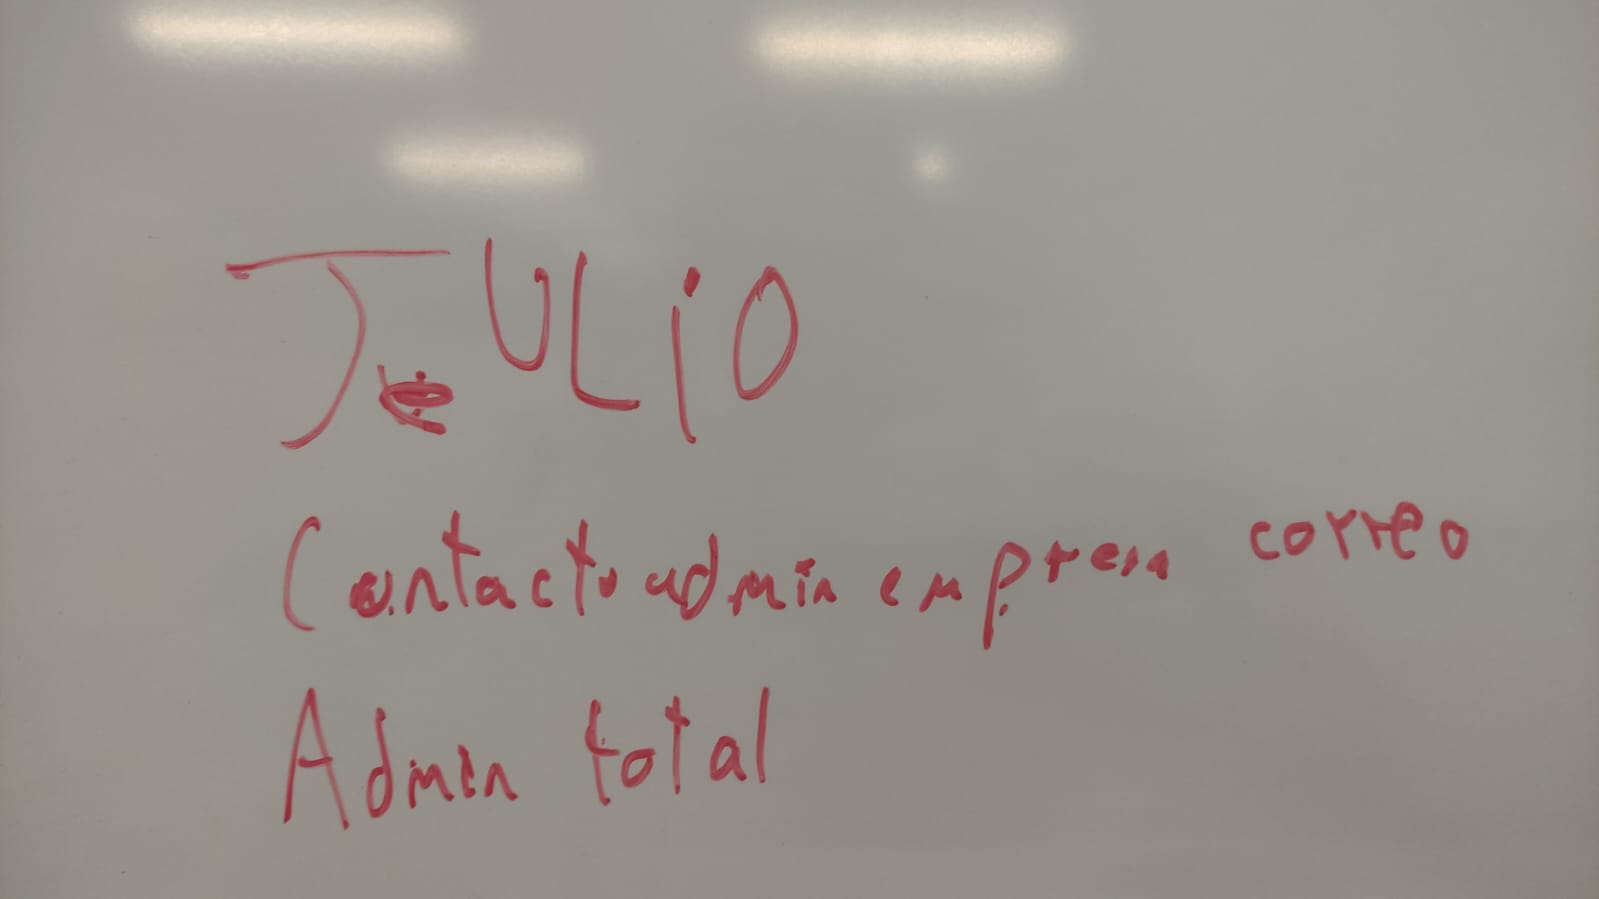 JULIO
Contacto admin empresa correo
Admin total